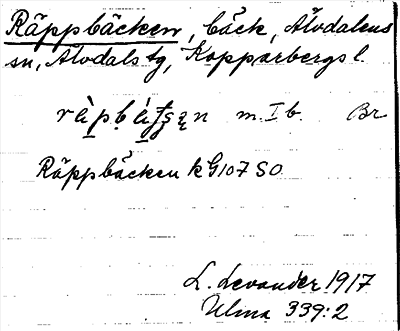 Räppbäcken, bäck, Älvdalens
sn, Älvdals tg, Kopparbergs l.
m. I b. Br
Räppbäcken k G107 SO.
L. Levander 1917
Ulma 339:2